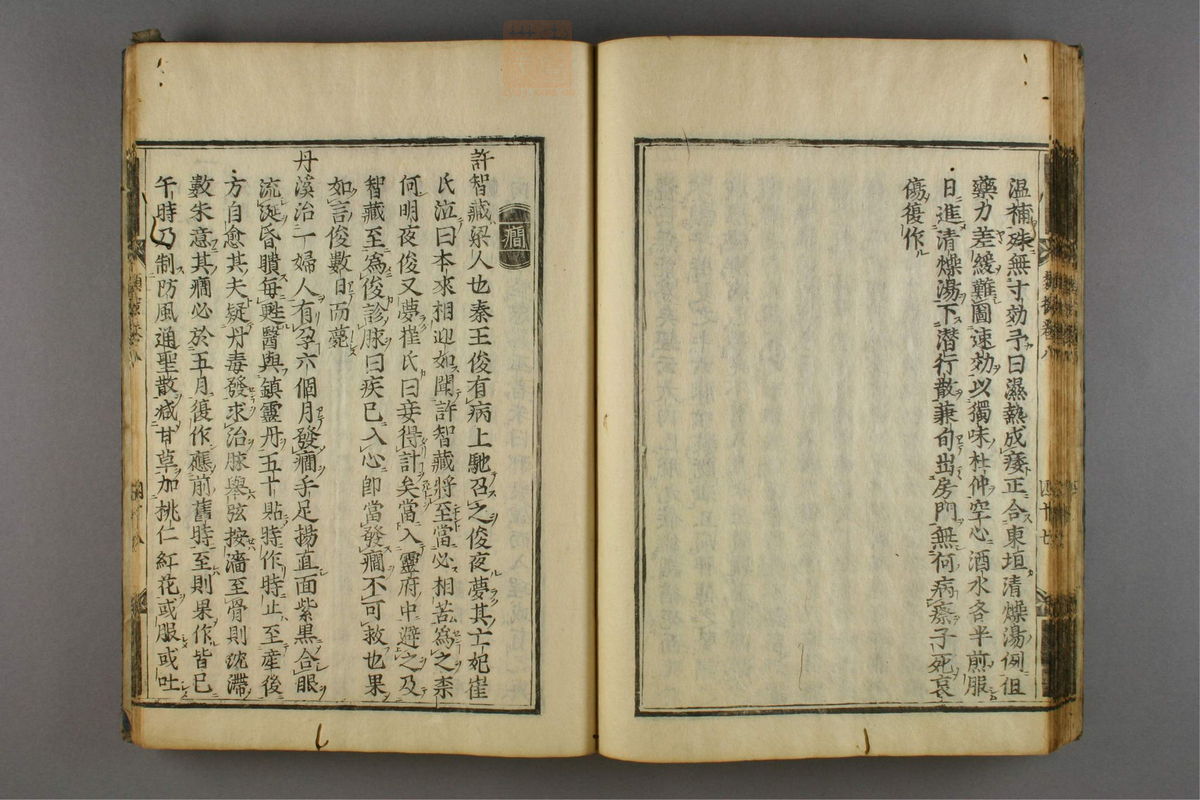 温補殊無寸効予曰濕熱成痿正合東垣清燥湯例但
藥力差緩難圖速効以獨味杜仲空心酒水各半煎服
日進清燥湯下潜行散兼旬出房門無何病瘵子死哀
傷復作
癇
許智藏梁人也秦王俊有病上馳召之俊夜夢其亡妃崔
氏泣曰本來相迎如聞許智藏將至當必相苦為之柰
何明夜俊又夢崔氏曰妾得計矣當入靈府中避之及
智藏至為俊診脉曰疾已入心即當發癇不可救也果
如言俊數日而薨
丹溪治一婦人有孕六個月發癇手足揚直面紫黒合眼
流涎昏瞶每甦醫與鎮靈丹五十貼時作時止至產後
方自愈其夫疑丹毒發求治脉舉弦按濇至骨則沈滯
數朱意其癇必於五月復作應前舊時至則果作皆巳
午時乃制防風通聖散减甘草加桃仁紅花或服或吐